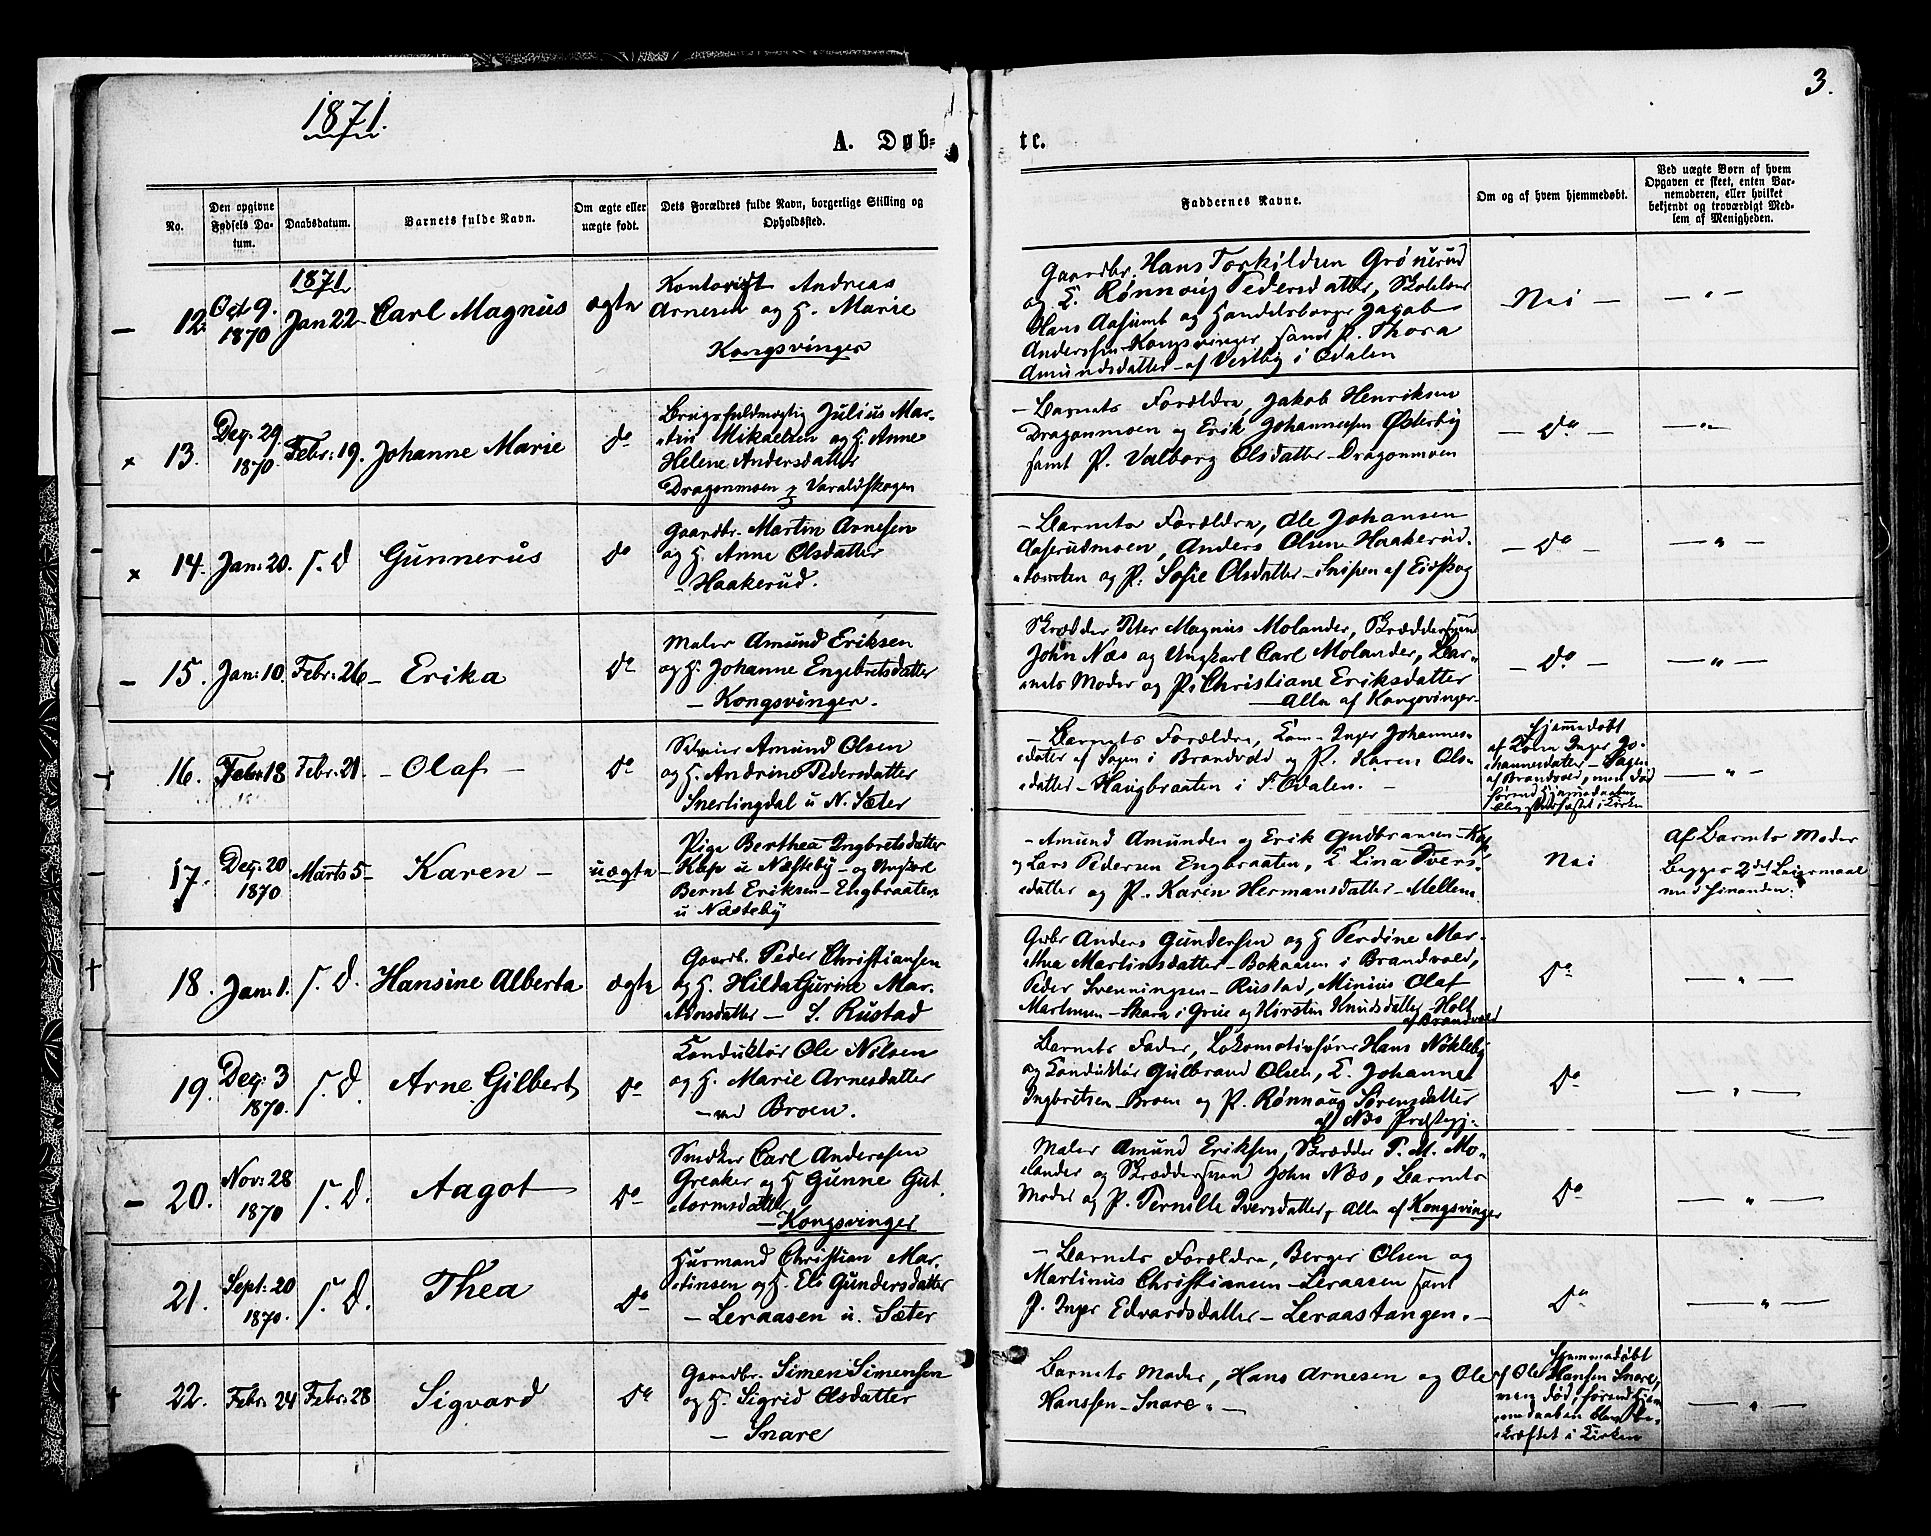 1871.
3.
A. Døb=
te.
No.
Den opgivne Fødsels Da-tum.
Daabsdatum.
Barnets fulde Navn.
Om ægte eller uægte født.
Dets Forældres fulde Navn, borgerlige Stilling og Opholdssted.
Faddernes Navne.
Om og af hvem hjemmedøbt.
Ved uægte Børn af hvem Opgaven er skeet, enten Bar-nemoderen, eller hvilket bekjendt og troværdigt Med-lem af Menigheden.
1871
12. Oct 9. 1870 Jan 22 - Carl Magnus ægte
Andreas
Arnesen og H. Marie
Kongsvinger
Gaardbr. Hans Torkildsen Grønerud
og K. Rønnoug Pedersdatter,
Hans Aasumt og Handelsborger Jacob
Andersen - Kongsvinger, samt P. Thora
Amundsdatter - af Vestby i Odalen
- Nei -
- " -
x 13. Dec: 29 1870. Febr: 19. Johanne Marie do
Brugsfuldmægtig Julius Mar-
tin Mikaelsen og H. Anne
Helene Andersdatter
Dragonmoen p Varaldskogen
- Barnets Forældre, Jakob Henriksen
Dragonmoen og Erik Johannessen Østerby
samt P. Valborg Olsdatter - Dragonmoen
- do -
- " -
x 14. Jan: 20. s. D Gunnerus do
Gaardbr. Martin Arnesen
og H. Anne Olsdatter
- Haakerud.
- Barnets Forældre, Ole Johansen
Aaserudmoen, Anders Olsen Haakerud-
og P. Sofie Olsdatter - Snipen af Eidskog
- do -
- " -
- 15. Jan: 10. Febr: 26 - Erika do
Maler Amund Eriksen
og H. Johanne Engebretsdatter
- Kongsvinger -
Skrædder Peter Magnus Molander, Skræddersvend
John Næs og Ungkarl Carl Molander, Bar-
nets Moder og P. Christiane Eriksdatter
- Alle af Kongsvinger -
- do -
- " -
16. Febr: 18 Febr: 21. - Olaf - do
Amund Olsen
og H. Andrine Pedersdatter
Snerlingdal u N. Sæter
- Barnets Forældre, Kone Inger Johannes-
datter af Sagen i Brandvold og P. Karen Ols-
datter - Haugbraaten i S. Odalen. -
Hjemmedøbt
af Kone Inger Jo-
hannesdatter - Sagen
af Brandvold, men død
førend Hjemmedaaben
blev stadfæstet i Kirken
- " -
17. Dec: 20 1870 Marts 5 - Karen - uægte
Pige Berthea Ingbretsdatter
Kap u Næsteby - og Ungkarl
Bernt Eriksen - Engbraaten
u Næsteby
- Amund Amunden og Erik Gudbransen - Kap
og Lars Pedersen Engbraaten, K Lina Ivers-
datter og P. Karen Hermansdatter - Mellem
Nei
Af Barnets Moder
Begges 2det Leiermaal
med hinanden.
† 18. Jan: 1. s. D. Hansine Alberta ægte
Gaardb. Peder Christiansen
og H. Hilda Gurine Mar-
tinsdatter - S. Rustad
Gdbr Anders Gundersen og H Perdine Mar-
thea Martinsdatter - Bokaasen i Brandvold,
Peder Svenningsen - Rustad, Minius Olaf
Martinsen - Skara i Grue og Kirsten Knudsdatter - Holt
af Brandvold
do
"
19. Dec: 3 1870. s. D. Arne Gilbert do
Konduktør Ole Nilsen
og H. Marie Arnesdatter
- ved Broen.
Barnets Fader, Lokomotivfører Hans Nøkleby
og Konduktør Gulbrand Olsen, K. Johanne
Ingbretsen - Broen og P. Rønnoug Sørensdatter
af Næs Præstegj:
do
- " -
- 20. Nov: 28 1870 s. D. Aagot do
Snedker Carl Andersen
Greaker og H Gunne Gut-
tormsdatter
- Kongsvinger
Maler Amund Eriksen, Skrædder P. M. Mo-
lander og Skræddersvend John Næs, Barnets
Moder og P. Pernille Iversdatter, Alle af Kongsvinger
do
- " -
21. Sept: 20 1870. s. D. Thea do
Husmand Christian Mar-
tinsen og H. Eli Gundersdatter
- Leraasen u. Sæter
- Barnets Forældre, Berger Olsen og
Martinus Christiansen - Leraasen samt
P. Inger Edvardsdatter - Leraastangen. -
do
- " -
† 22. Febr: 24 Febr: 28 Sigvard do
Gaardbr. Simen Simensen
og H. Sigrid Olsdatter
- Snare
Barnets Moder, Hans Arnesen og Ole
Hanssen - Snare. -
Hjemmedøbt
af Ole Hansen Snare,
men død, førend Hjem-
medaaben blev be-
kræftet i Kirken
- " -